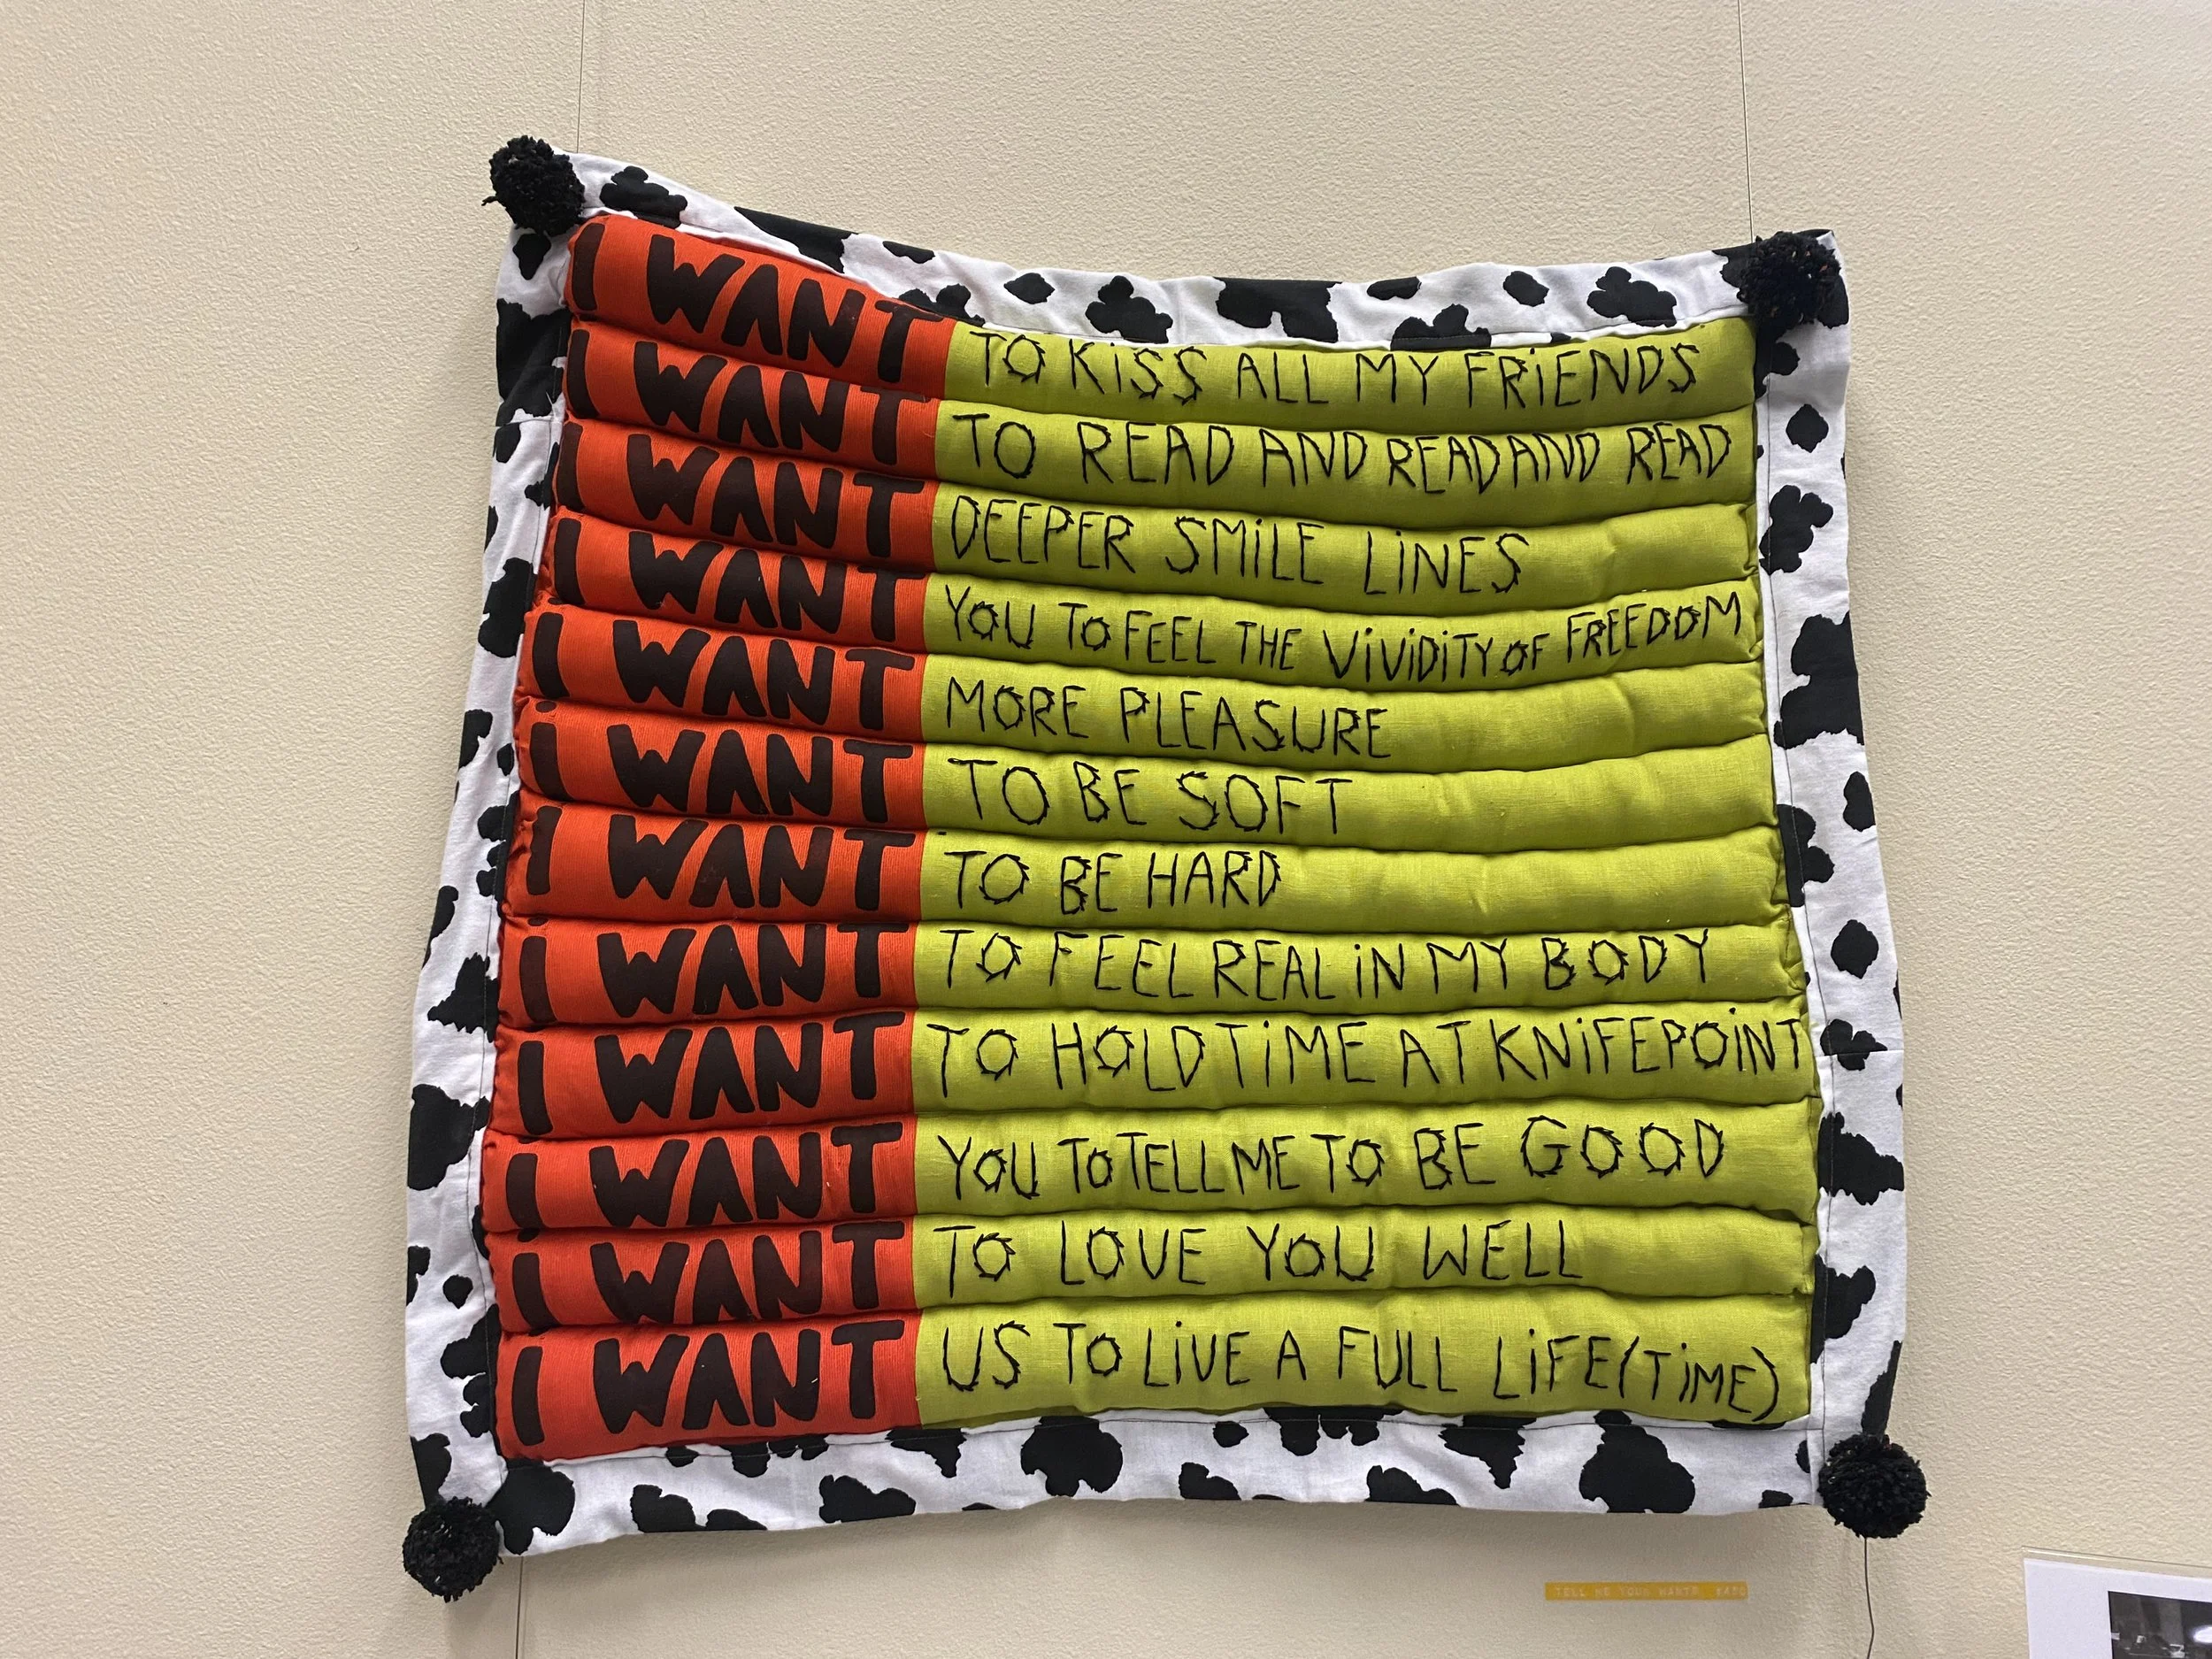 I WANT TO KiSS ALL MY FRiENDS
I WANT TO READ AND READ AND READ
I WANT DEEPER SMiLE LiNES
I WANT YOU TO FEEL THE ViViDiTY OF FREEDOM
I WANT MORE PLEASURE
i WANT TO BE SOFT
i WANT TO BE HARD
i WANT TO FEEL REAL iN MY BODY
I WANT TO HOLD TiME AT KNiFEPOiNT
I WANT YOU TO TELL ME TO BE GOOD
i WANT TO LOVE YOU WELL
I WANT US TO LiVE A FULL LiFE(TiME)
TELL ME YOUR WANTS